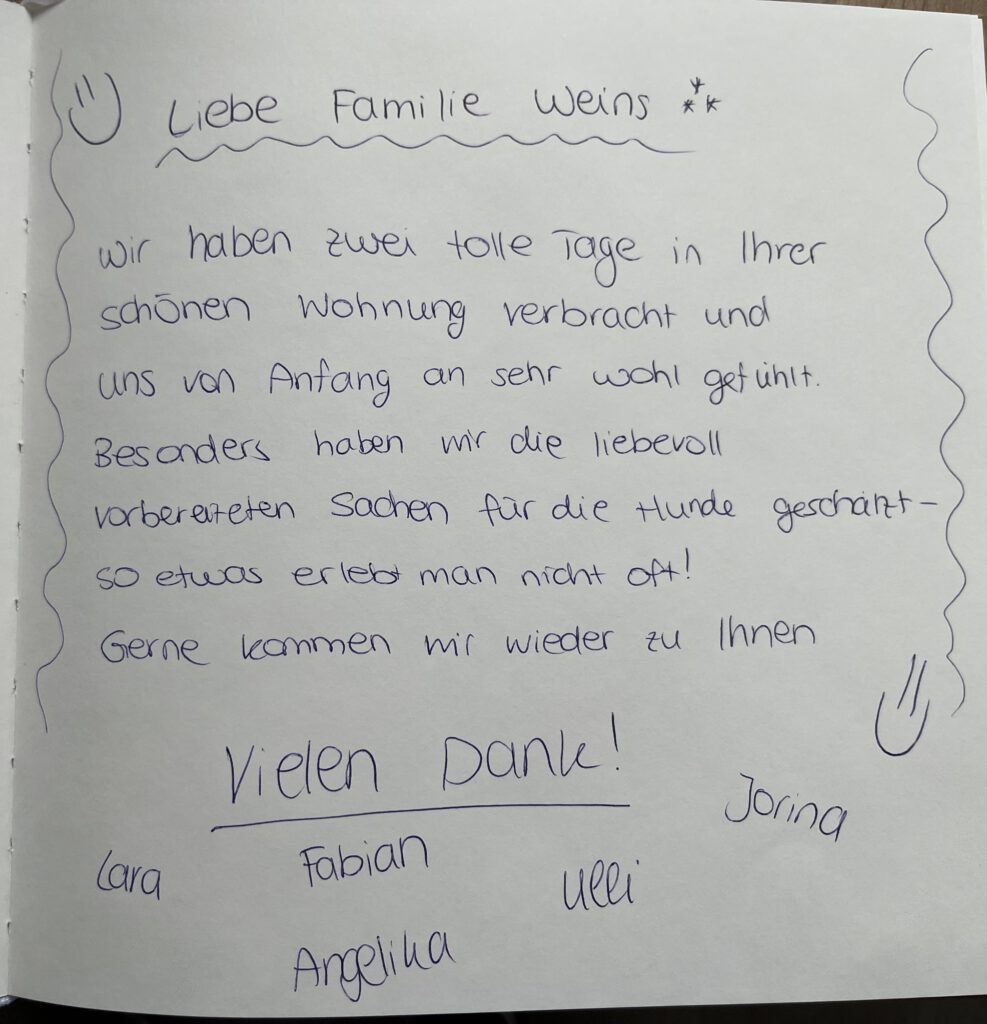 Liebe Familie Weins
wir haben zwei tolle Tage in Ihrer
schönen Wohnung verbracht und
uns von Anfang an sehr wohl gefühlt.
Besonders haben wir die liebevoll
vorbereiteten Sachen für die Hunde geschätzt –
so etwas erlebt man nicht oft!
Gerne kommen wir wieder zu Ihnen
Vielen Dank!
Jorina
Lara Fabian Ulli
Angelika